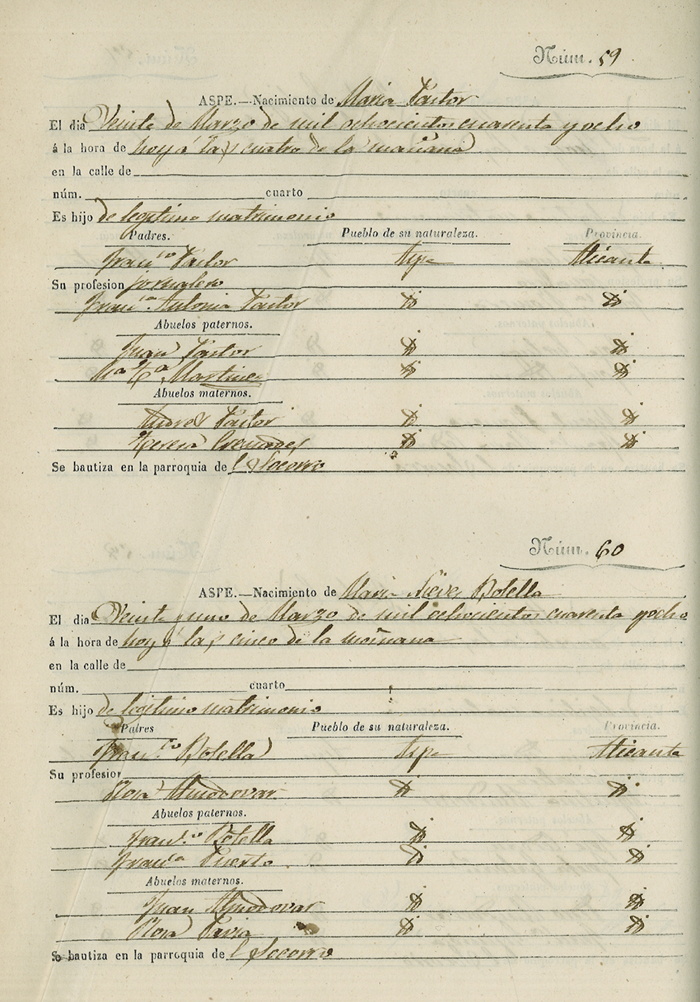 Núm. 59
ASPE.—Nacimiento de Maria Pastor
El dia Veinte de Marzo de mil ochocientos cuarenta y ocho
á la hora de hoy á las cuatro de la mañana
en la calle de
núm. cuarto
Es hijo de legitimo matrimonio
Padres. Pueblo de su naturaleza. Provincia.
Fran.co Pastor Aspe Alicante
Su profesion jornalero
Fran.ca Antonia Pastor
Abuelos paternos.
Juan Pastor
Martinez
Abuelos maternos.
Andres Pastor
Teresa Cremades
Se bautiza en la parroquia de l Socorro
Núm. 60
ASPE.—Nacimiento de Maria Nieves Botella
El dia Veinte y uno de Marzo de mil ochocientos cuarenta y ocho
á la hora de hoy á las cinco de la mañana
en la calle de
núm. cuarto
Es hijo de legitimo matrimonio
Padres Pueblo de su naturaleza. Provincia.
Fran.co Botella Aspe Alicante
Su profesion
Rosa Almodovar
Abuelos paternos.
Fran.co Botella
Fran.ca Puerto
Abuelos maternos.
Juan Almodovar
Rosa Pavia
Se bautiza en la parroquia de l Socorro